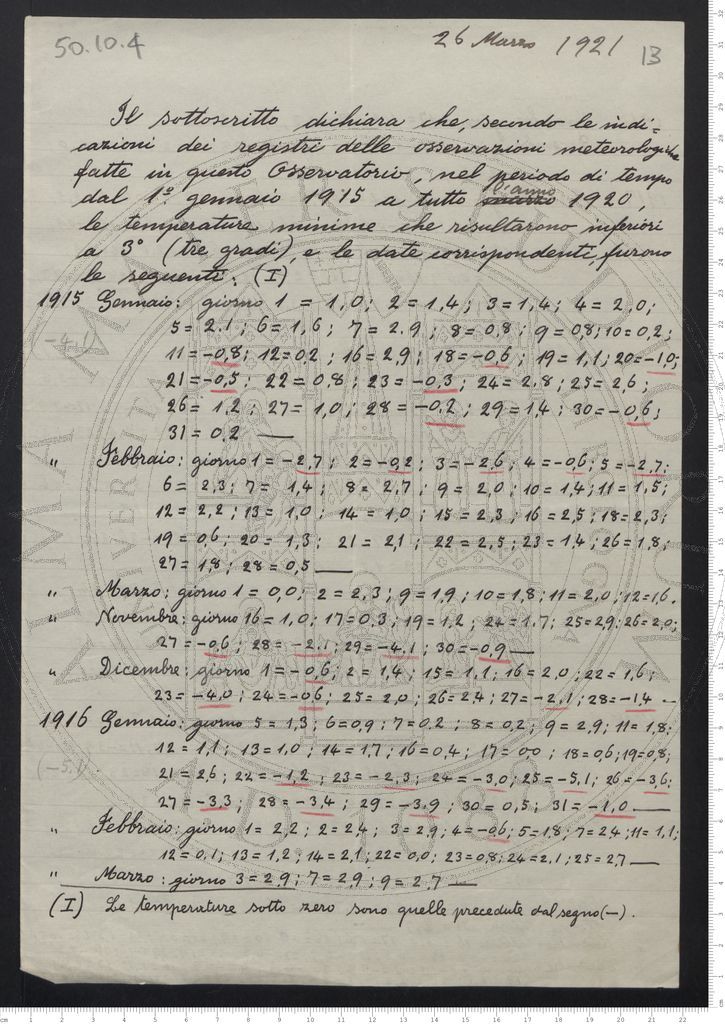 50.10.4
26 Marzo 1921
13
Il sottoscritto dichiara che, secondo le indi=
cazioni dei registri delle osservazioni meteorologiche
fatte in questo Osservatorio, nel periodo di tempo
dal 1º gennaio 1915 a tutto 1920,
le temperature minime che risultarono inferiori
a 3° (tre gradi), e le date corrispondenti, furono
le seguenti: (I)
1915 Gennaio: giorno 1 = 1,0; 2 = 1,4; 3 = 1,4; 4 = 2,0;
5 = 2,1; 6 = 1,6; 7 = 2,9; 8 = 0,8; 9 = 0,8; 10 = 0,2;
(-4,1)
11 = -0,8; 12 = 0,2; 16 = 2,9; 18 = -0,6; 19 = 1,1; 20 = -1,0;
21 = -0,5; 22 = 0,8; 23 = -0,3; 24 = 2,8; 25 = 2,6;
26 = 1,2; 27 = 1,0; 28 = -0,2; 29 = 1,4; 30 = -0,6;
31 = 0,2 —
" Febbraio: giorno 1 = -2,7; 2 = -0,2; 3 = -2,6; 4 = -0,6; 5 = -2,7;
6 = 2,3; 7 = 1,4; 8 = 2,7; 9 = 2,0; 10 = 1,4; 11 = 1,5;
12 = 2,2; 13 = 1,0; 14 = 1,0; 15 = 2,3; 16 = 2,5; 18 = 2,3;
19 = 0,6; 20 = 1,3; 21 = 2,1; 22 = 2,5; 23 = 1,4; 26 = 1,8;
27 = 1,8; 28 = 0,5 —
" Marzo: giorno 1 = 0,0; 2 = 2,3; 9 = 1,9; 10 = 1,8; 11 = 2,0; 12 = 1,6.
" Novembre: giorno 16 = 1,0; 17 = 0,3; 19 = 1,2; 24 = 1,7; 25 = 2,9; 26 = 2,0;
27 = -0,6; 28 = -2,1; 29 = -4,1; 30 = -0,9 —
" Dicembre: giorno 1 = -0,6; 2 = 1,4; 15 = 1,1; 16 = 2,0; 22 = 1,6;
23 = -4,0; 24 = -0,6; 25 = 2,0; 26 = 2,4; 27 = -2,1; 28 = -1,4 —
1916 Gennaio: giorno 5 = 1,3; 6 = 0,9; 7 = 0,2; 8 = 0,2; 9 = 2,9; 11 = 1,8;
12 = 1,1; 13 = 1,0; 14 = 1,7; 16 = 0,4; 17 = 0,0; 18 = 0,6; 19 = 0,8;
(-5,1)
21 = 2,6; 22 = -1,2; 23 = -2,3; 24 = -3,0; 25 = -5,1; 26 = -3,6;
27 = -3,3; 28 = -3,4; 29 = -3,9; 30 = 0,5; 31 = -1,0 —
" Febbraio: giorno 1 = 2,2; 2 = 2,4; 3 = 2,9; 4 = -0,6; 5 = 1,8; 7 = 2,4; 11 = 1,1;
12 = 0,1; 13 = 1,2; 14 = 2,1; 22 = 0,0; 23 = 0,8; 24 = 2,1; 25 = 2,7 —
" Marzo: giorno 3 = 2,9; 7 = 2,9; 9 = 2,7 —
(I) Le temperature sotto zero sono quelle precedute dal segno (—).